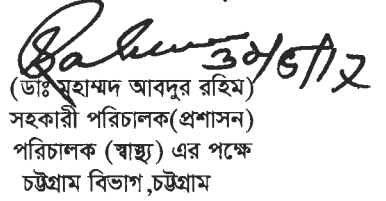 ৩০/৫/১৭
(ডাঃ মুহাম্মদ আবদুর রহিম)
সহকারী পরিচালক(প্রশাসন)
পরিচালক (স্বাস্থ্য) এর পক্ষে
চট্টগ্রাম বিভাগ ,চট্টগ্রাম